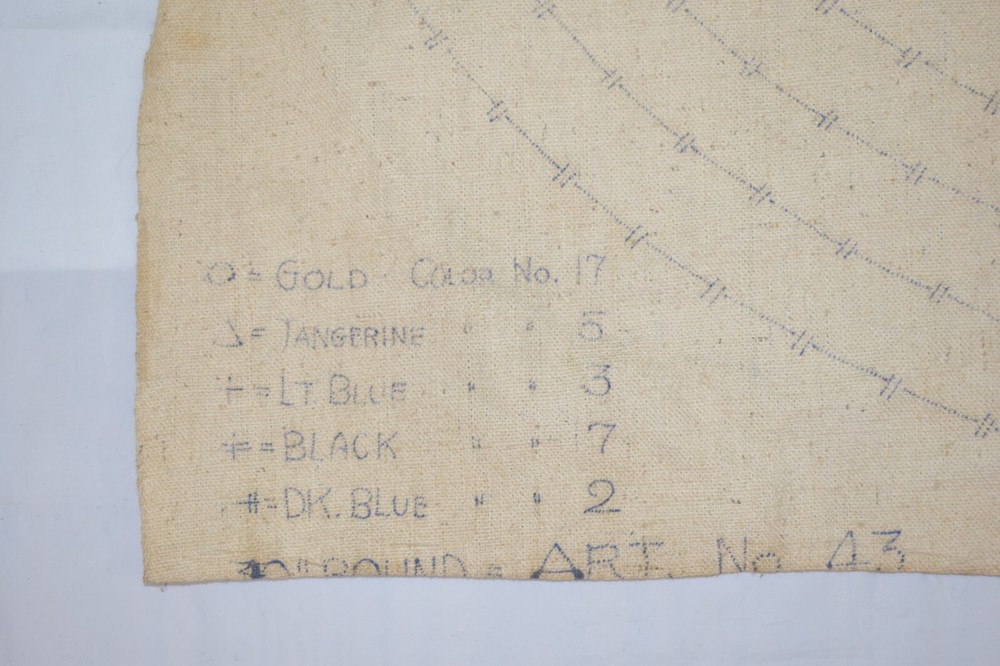 O = GOLD - COLOR No. 17
△ = TANGERINE " " 5
+ = LT. BLUE " " 3
‡ = BLACK " " 7
⧺ = DK. BLUE " " 2
= ART. No 43